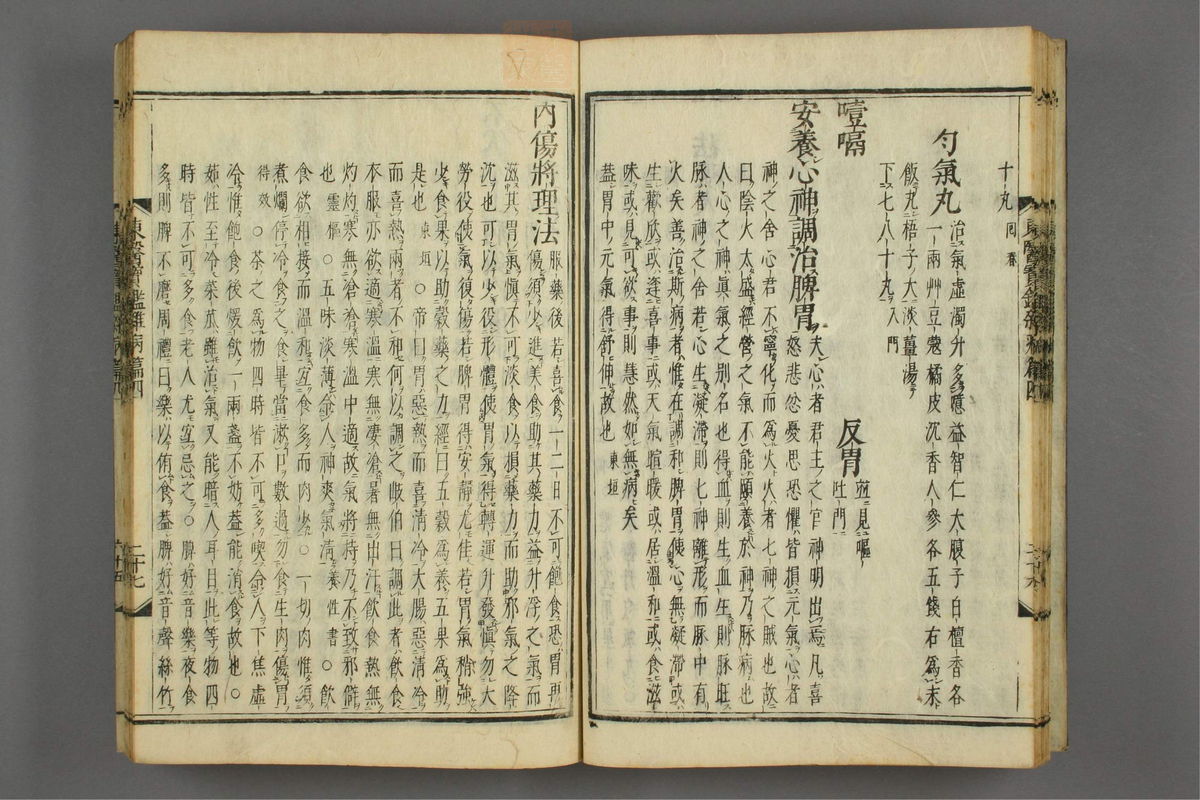 十丸 同春
勻氣丸 治氣虛濁升多噫益智仁大腹子白檀香各
一兩艸豆蔻橘皮沉香人參各五錢右爲末
飯丸梧子大淡薑湯
下七八十丸 入門
噎嗝 反胃 竝見嘔吐門
安養心神調治脾胃 夫心者君主之官神明出焉凡喜
怒悲忿憂思恐懼皆損元氣心者
神之舍心君不寧化而爲火火者七神之賊也故
曰陰火太盛經營之氣不能頤養於神乃脉病也
人心之神眞氣之別名也得血則生血生則脉旺
脉者神之舍若心生凝滯則七神離形而脉中有
火矣善治斯病者惟在調和脾胃使心無凝滯或
生歡欣或逢喜事或天氣暄暖或居溫和或食滋
味或見可欲事則慧然如無病矣
蓋胃中元氣得舒伸故也 東垣
東醫寶鑑雜病篇四
內傷將理法 服藥後若喜食一二日不可飽食恐胃再
傷須少進美食助其藥力益升浮之氣而
滋其胃氣愼不可淡食以損藥力而助邪氣之降
沈也可以少役形體使胃氣得轉運升發愼勿大
勞役使氣復傷若脾胃得安靜尤佳若胃氣稍強
少食果以助穀藥之力經曰五穀爲養五果爲助
是也 東垣 ○帝曰胃惡熱而喜淸冷大腸惡淸冷
而喜熱兩者不和何以調之岐伯曰調此者飲食
衣服亦欲適寒溫寒無凄滄暑無出汗飲食熱無
灼灼寒無滄滄寒溫中適故氣將持乃不致邪僻
也 靈樞 ○五味淡薄令人神爽氣淸 養性書 ○飲
食欲相接而溫和宜食多而肉少○一切肉惟須
煮爛停冷食之食畢當漱口數過勿食生肉傷胃
得效 ○茶之爲物四時皆不可多喫令人下焦虛
冷惟飽食後煖飲一兩盞不妨蓋能消食故也○
茹性至冷菜茹雖治氣又能暗人耳目此等物四
時皆不可多食老人尤宜忌之○脾好音樂夜食
多則脾不磨周禮曰樂以侑食蓋脾好音聲絲竹
東醫寶鑑雜病篇四
二十七
六十五